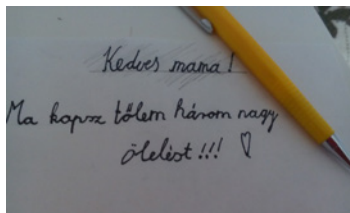 Kedves mama!
Ma kapsz tőlem három nagy
ölelést!!!